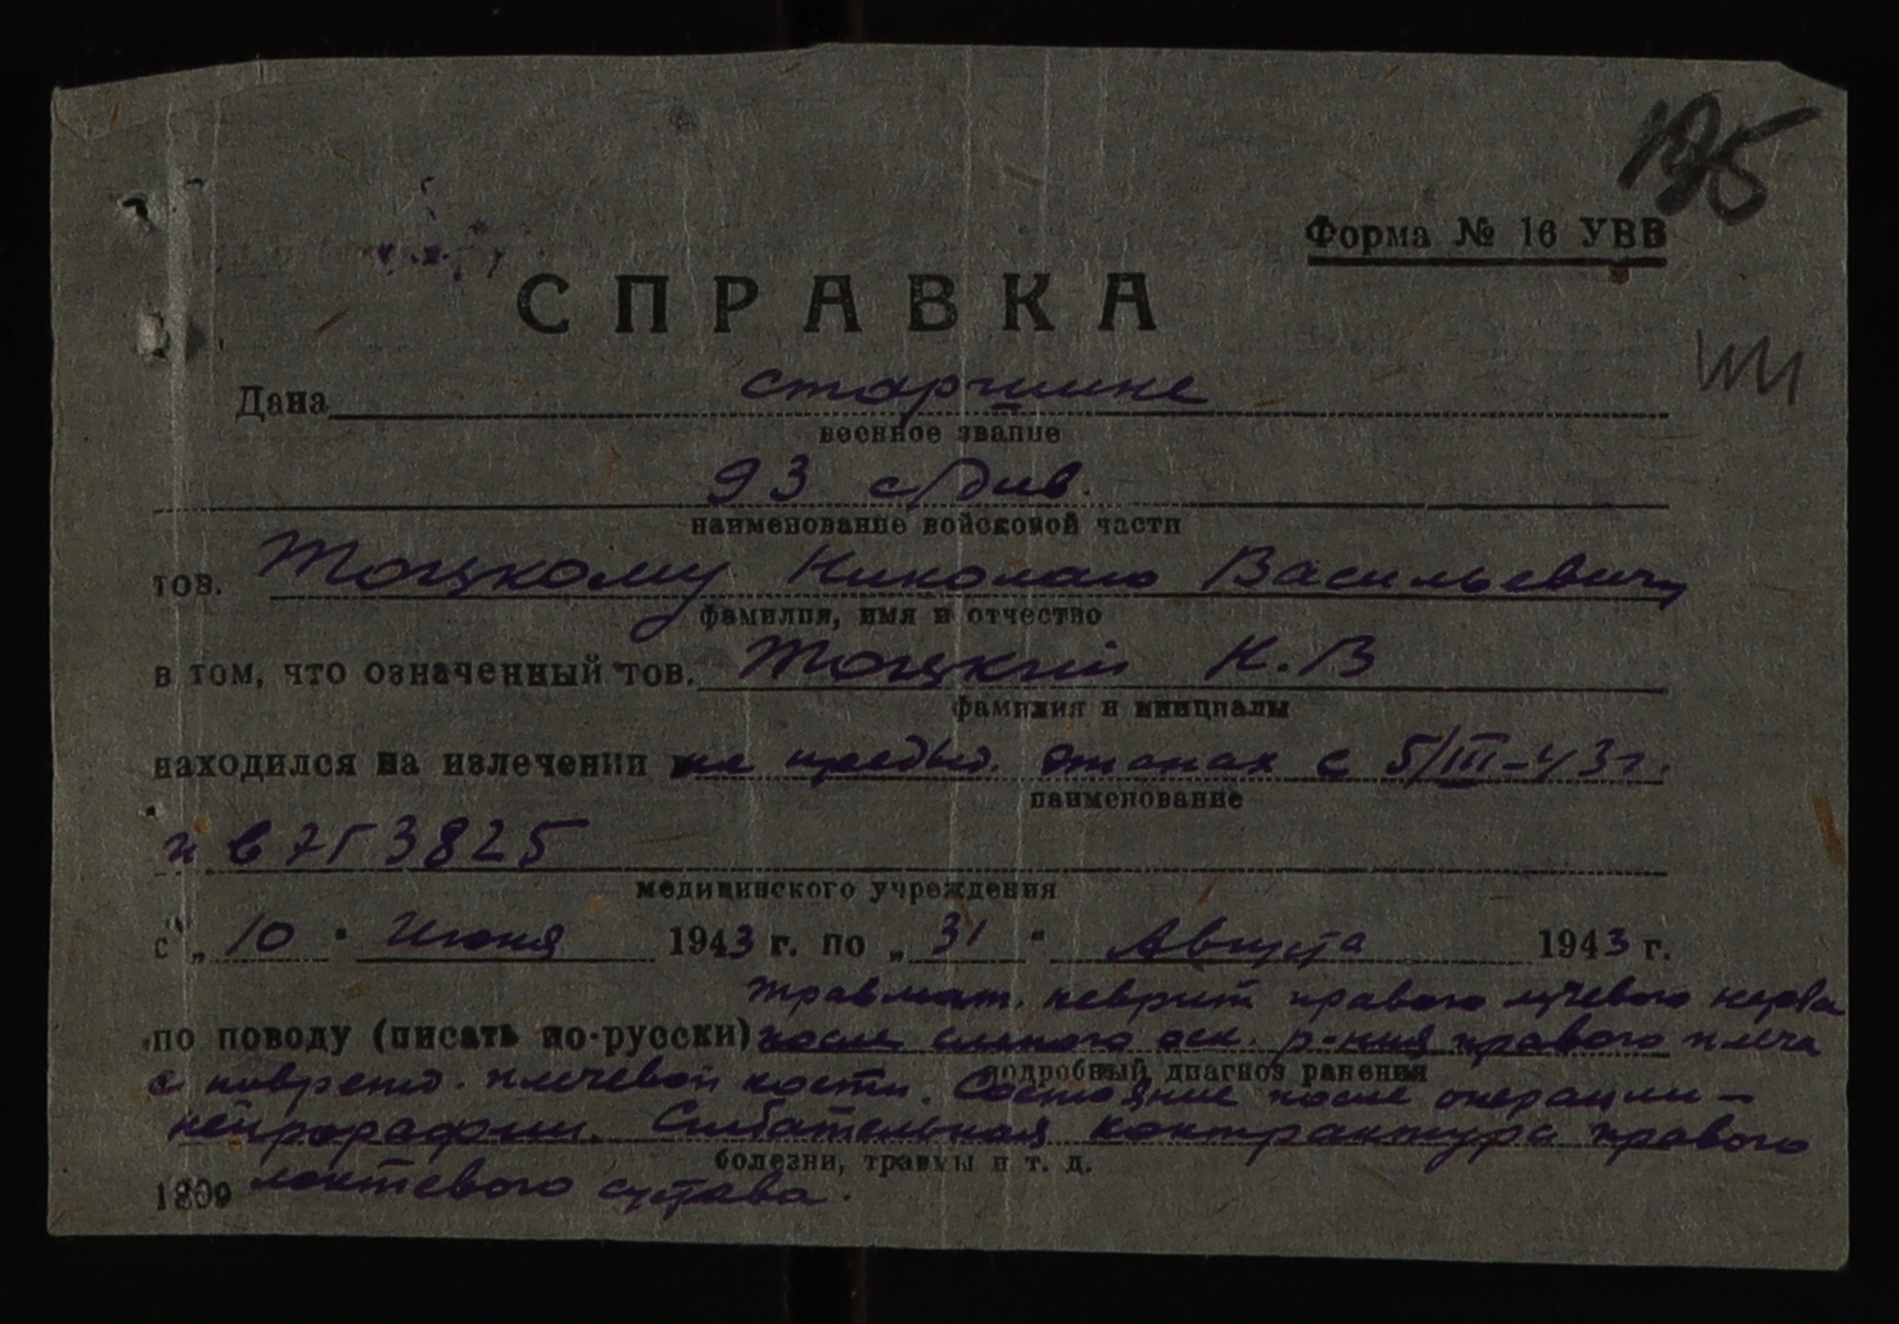 195
Форма № 16 УВВ
СПРАВКА
Дана старшине
военное звание
93 с/див.
наименование войсковой части
тов. Тоцкому Николаю Васильевичу
фамилия, имя и отчество
в том, что означенный тов. Тоцкий К.В
фамилия и инициалы
находился на излечении на предыд. этапах с 5/III-43г.
наименование
и в ЭГ 3825
медицинского учреждения
с „10" Июня 1943 г. по „31" Августа 1943 г.
травмат. неврит правого лучевого нерва
по поводу (писать по-русски) после слепого оск. р-ния правого плеча
подробный диагноз ранения
с поврежд. плечевой кости. Состояние после операции –
нейрорафии. Сгибательная контрактура правого
болезни, травмы и т. д.
локтевого сустава.